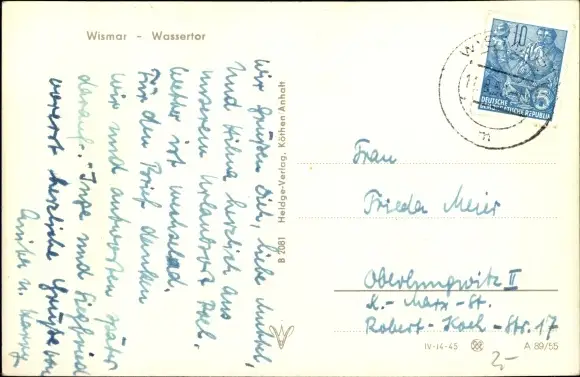 Wismar - Wassertor
Wir grüßen Dich, liebe Muttel,
und Hilma herzlich aus
unserem Urlaubsort. Das
Wetter ist wechselnd.
Für den Brief danken
wir und antworten später
darauf. Inge und Siegfried
vorerst herzliche Grüße von
B 2081 Heldge-Verlag, Köthen Anhalt
10
DEUTSCHE
DEMOKRATISCHE REPUBLIK
Frau
Frieda Meier
Oberlungwitz II
K.-Marx-St.
Robert-Koch-Str. 17
IV-14-45
A 89/55
2,-